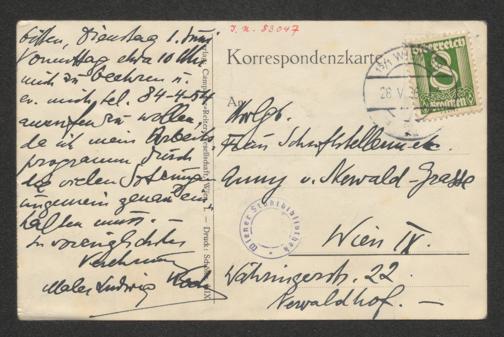 J. N. 83047
bitten, Dienstag 1. Juni
Vormittag etwa 10 Uhr
mich zu beehren u.
ev. mich tel. 84-4-54
anrufen zu wollen,
da ich mein Arbeits
programm durch
die vielen
ungemein genau
halten muss. —
In vorzüglichster
Verehrung
Maler Ludwig Koch
Korrespondenzkarte
An
Frau Schriftstellerin
Anny v. Newald-Grasse
Wien IX.
Währingerstr. 22.
Newaldhof. —
Österreich
8
Groschen
Wiener Stadtbibliothek